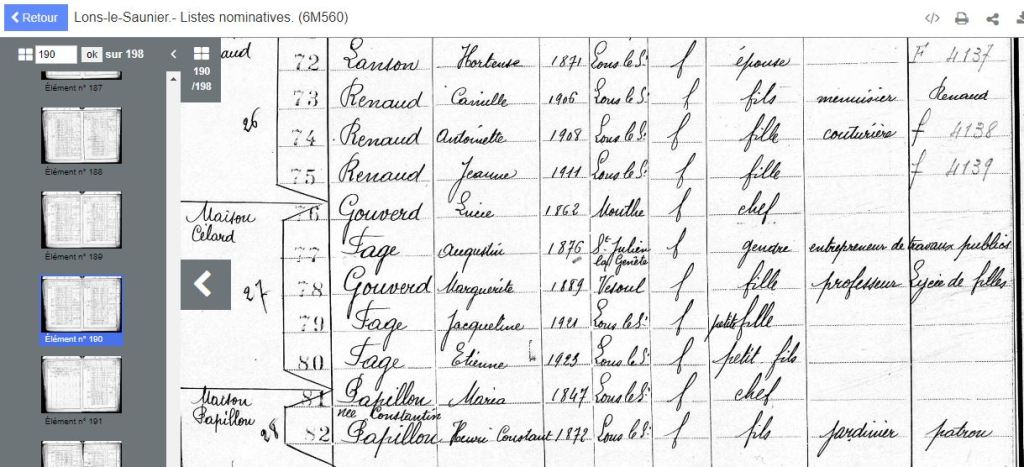 Retour Lons-le-Saunier.- Listes nominatives. (6M560)
190 ok sur 198
190
/198
Élément n° 187
Élément n° 188
Élément n° 189
Élément n° 190
Élément n° 191
aud 72 Lanson Hortense 1871 Lons le Sr f épouse F 4137
26
73 Renaud Camille 1906 Lons le Sr f fils menuisier Renaud
74 Renaud Antoinette 1908 Lons le Sr f fille couturière f 4138
75 Renaud Jeanne 1911 Lons le Sr f fille f 4139
Maison Célard
27
76 Gouverd Lucie 1862 Mouthe f chef
77 Fage Augustin 1876 St Julien la Genête f gendre entrepreneur de travaux publics
78 Gouverd Marguerite 1889 Vesoul f fille professeur Lycée de filles
79 Fage Jacqueline 1921 Lons le Sr f petite fille
80 Fage Etienne 1923 Lons le Sr f petit fils
Maison Papillon
28
81 Papillon Maria 1847 Lons le Sr f chef
née Constantin
82 Papillon Henri Constant 1872 Lons le Sr f fils jardinier patron